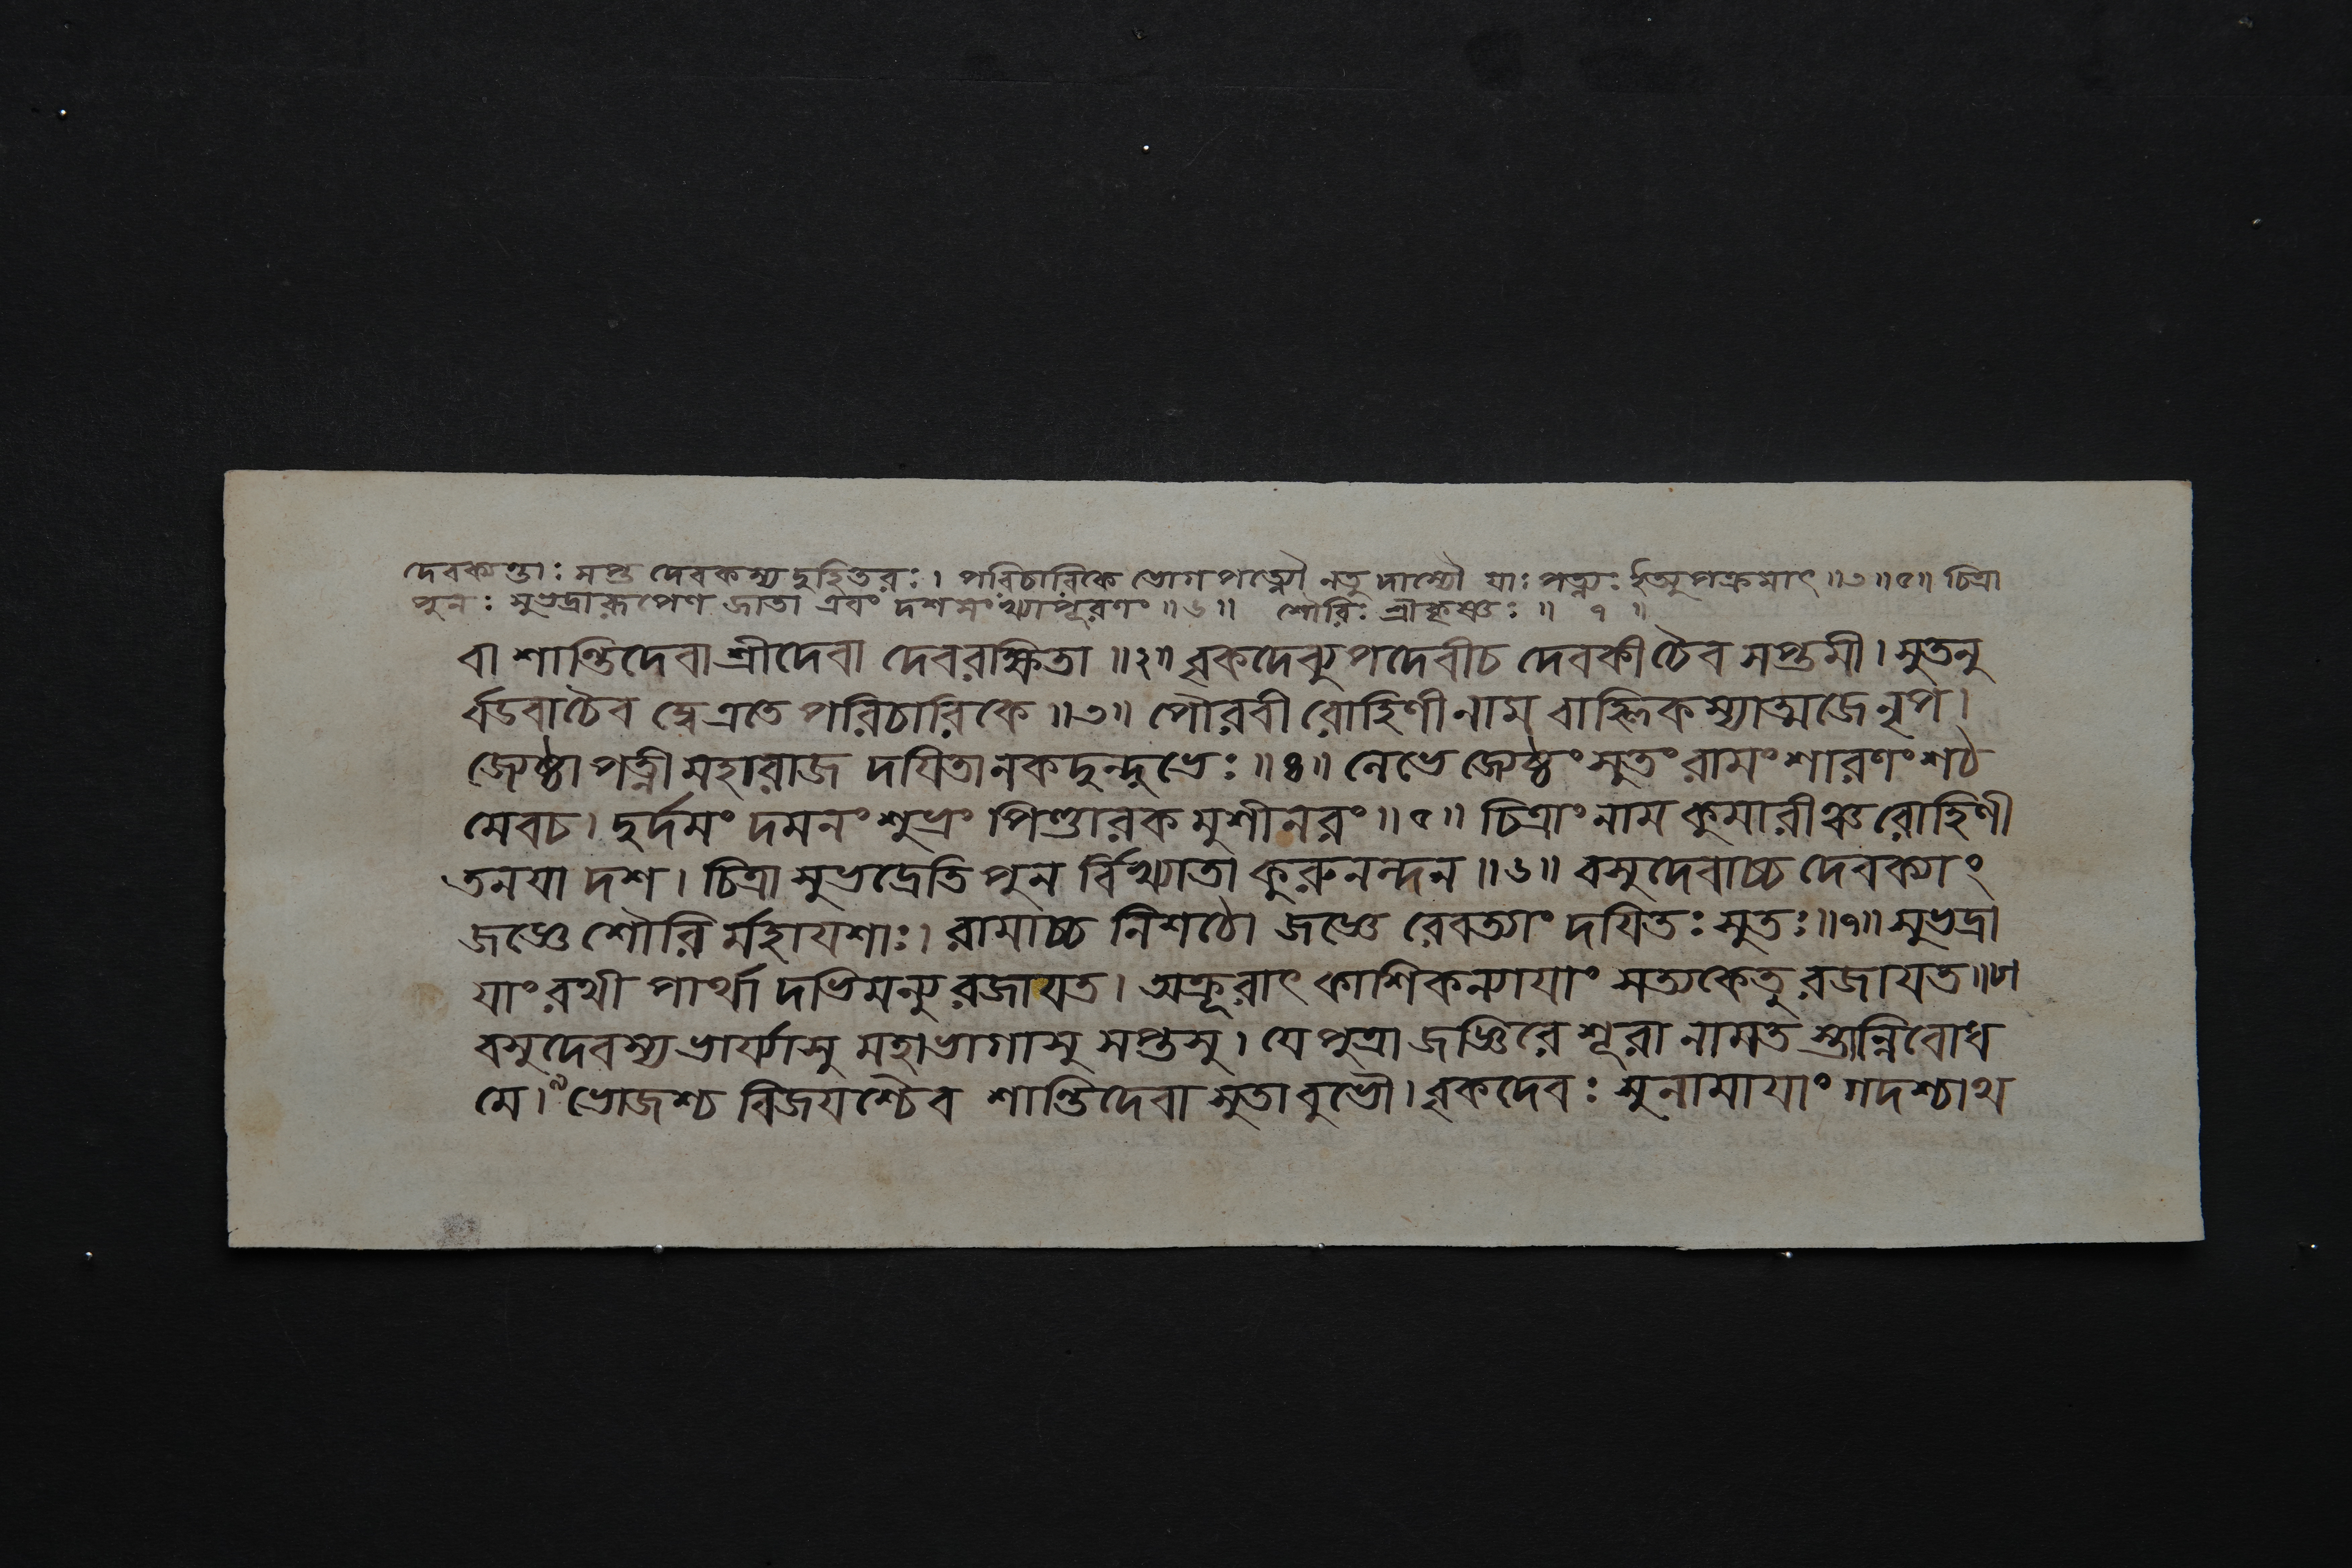 দেবক্যন্তাঃ সপ্ত দেবকস্য দুহিতরঃ। পরিচারিকে ভোগপত্ন্যৌ নতু দাস্যৌ যাঃ পত্ন্যঃ ইত্যুপক্রমাৎ॥৩॥৫॥ চিত্রা
পুনঃ সুভদ্রারূপেণ জাতা এবং দশসংখ্যাপূরণং॥৬॥ শৌরিঃ শ্রীকৃষ্ণঃ॥ ৭ ॥
বা শান্তিদেবা শ্রীদেবা দেবরক্ষিতা॥২॥ বৃকদেব্যুপদেবীচ দেবকীচৈব সপ্তমী। সুতনু
র্বডবাচৈব দ্বে এতে পরিচারিকে॥৩॥ পৌরবী রোহিণীনাম বাহ্লিকস্যাত্মজে নৃপ।
জ্যেষ্ঠা পত্নী মহারাজ দয়িতানকদুন্দুভেঃ॥৪॥ লেভে জ্যেষ্ঠং সুতং রামং শারণং শঠ
মেবচ। দুর্দমং দমনং শুভ্রং পিণ্ডারক মুশীনরং॥৫॥ চিত্রাং নাম কুমারীঞ্চ রোহিণী
তনয়া দশ। চিত্রা সুভদ্রেতি পুন র্বিখ্যাতা কুরুনন্দন॥৬॥ বসুদেবাচ্চ দেবক্যাং
জজ্ঞে শৌরি র্মহাযশাঃ। রামাচ্চ নিশঠো জজ্ঞে রেবত্যাং দয়িতঃ সুতঃ॥৭॥ সুভদ্রা
যাং রথী পার্থা দভিমন্যু রজায়ত। অক্রূরাৎ কাশিকন্যায়াং সত্যকেতু রজায়ত॥৮॥
বসুদেবস্য ভার্য্যাসু মহাভাগাসু সপ্তসু। যে পুত্রা জজ্ঞিরে শূরা নামত স্তান্নিবোধ
মে।৯ ভোজশ্চ বিজয়শ্চৈব শান্তিদেবা সুতাবুভৌ। বৃকদেবঃ সুনামায়াং গদশ্চাথ